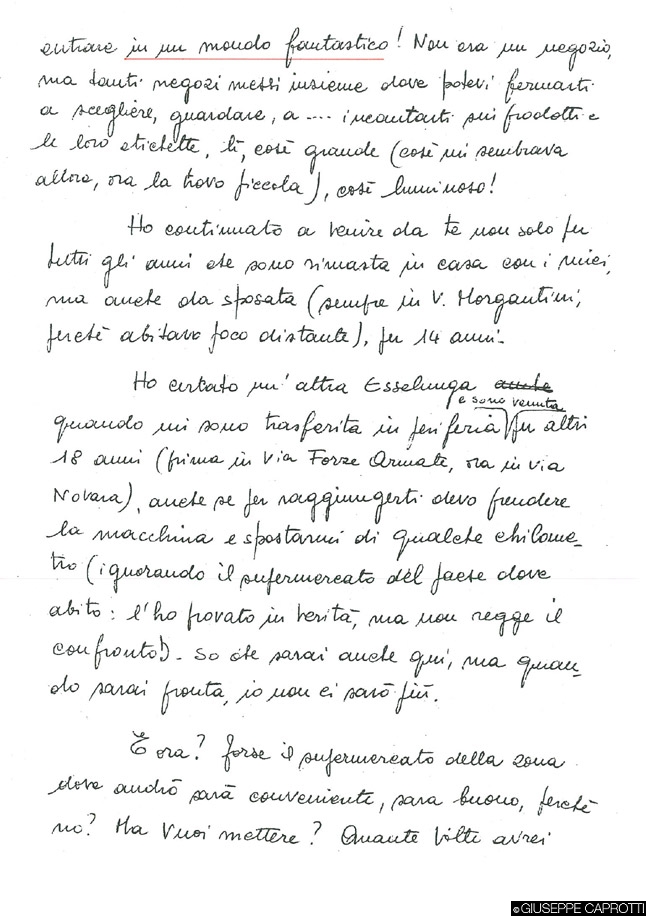 entrare in un mondo fantastico! Non era un negozio,
ma tanti negozi messi insieme dove potevi fermarti
a scegliere, guardare, a .... incantarti sui prodotti e
le loro etichette, lì, così grande (così mi sembrava
allora, ora la trovo piccola), così luminoso!
Ho continuato a venire da te non solo per
tutti gli anni che sono rimasta in casa con i miei,
ma anche da sposata (sempre in V. Morgantini,
perché abitavo poco distante), per 14 anni.
Ho cercato un'altra Esselunga anche
e sono venuta
quando mi sono trasferita in periferia per altri
18 anni (prima in Via Forze Armate, ora in via
Novara), anche se per raggiungerti devo prendere
la macchina e spostarmi di qualche chilome-
tro (ignorando il supermercato del paese dove
abito: l'ho provato in verità, ma non regge il
confronto!). So che sarai anche qui, ma quan-
do sarai pronta, io non ci sarò più.
E ora? Forse il supermercato della zona
dove andrò sarà conveniente, sara buono, perché
no? Ma vuoi mettere? Quante volte avrei
©GIUSEPPE CAPROTTI